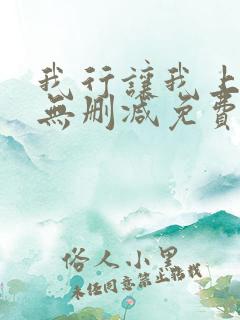 我行讓我上
無删减免費
俗人小黑
未经同意禁止转载